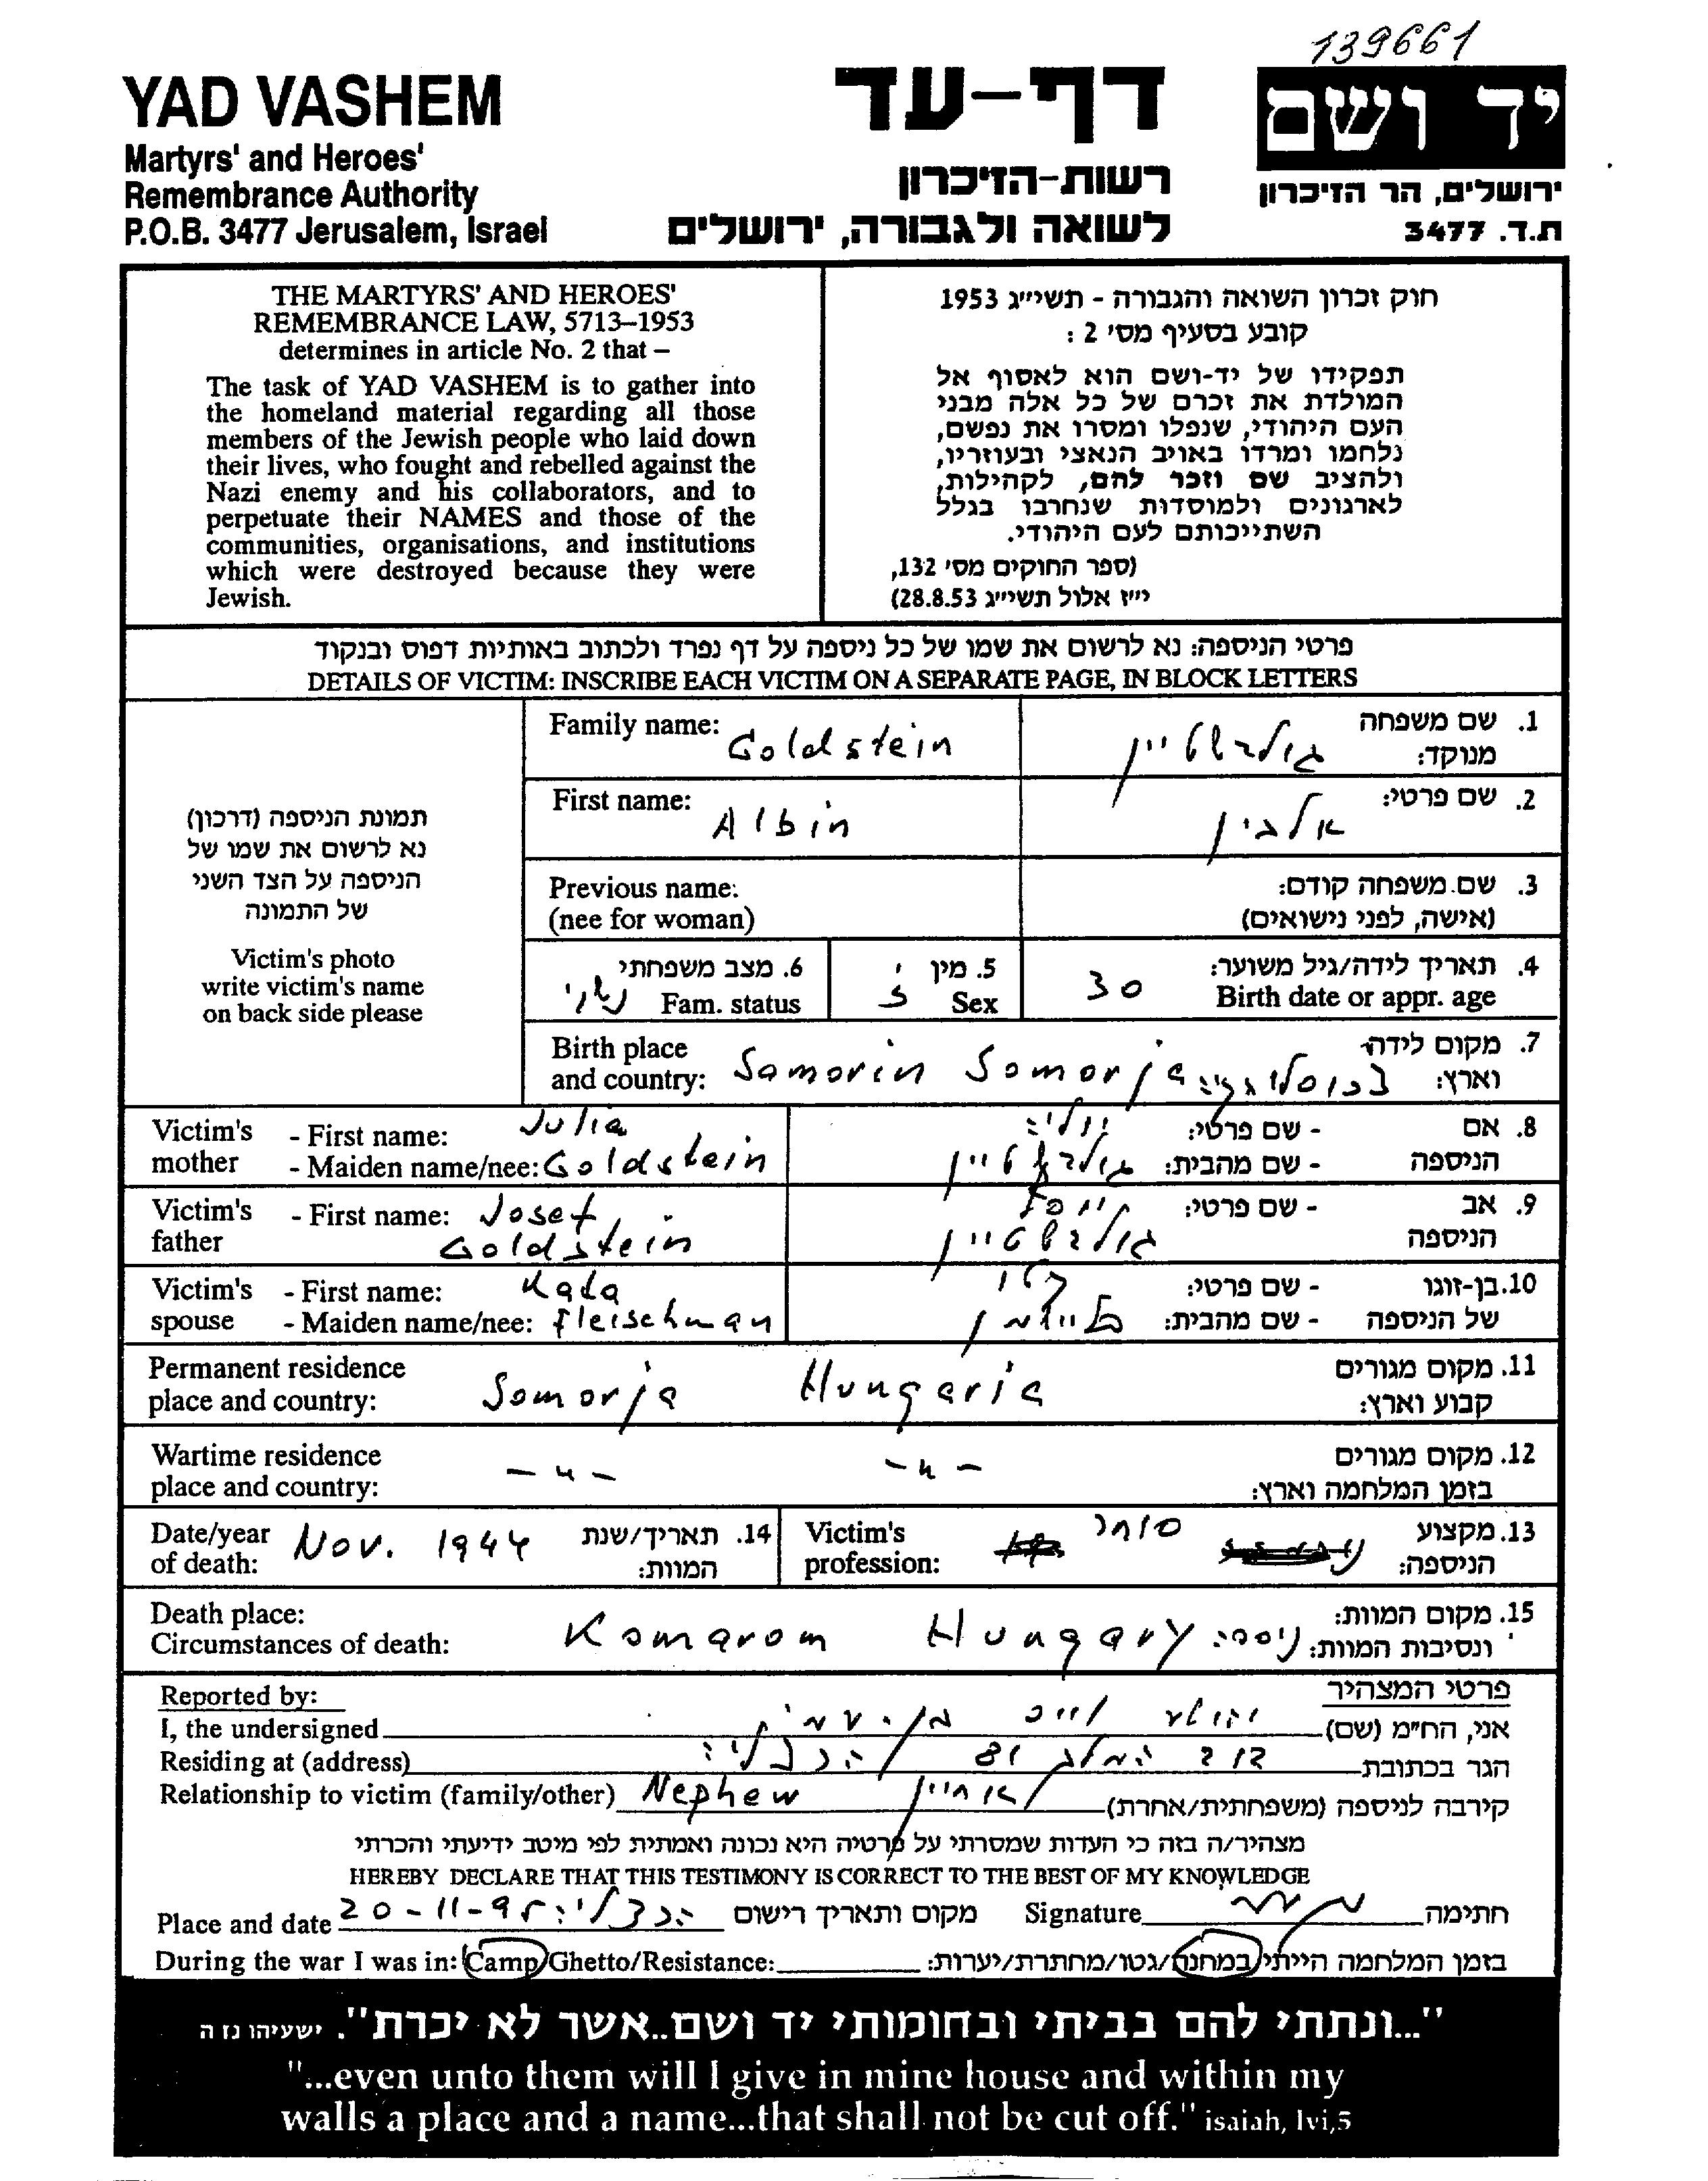 139661
YAD VASHEM
Martyrs' and Heroes'
Remembrance Authority
P.O.B. 3477 Jerusalem, Israel
דף-עד
רשות-הזיכרון
לשואה ולגבורה, ירושלים
יד ושם
ירושלים, הר הזיכרון
ת.ד. 3477
THE MARTYRS' AND HEROES'
REMEMBRANCE LAW, 5713–1953
determines in article No. 2 that –
The task of YAD VASHEM is to gather into
the homeland material regarding all those
members of the Jewish people who laid down
their lives, who fought and rebelled against the
Nazi enemy and his collaborators, and to
perpetuate their NAMES and those of the
communities, organisations, and institutions
which were destroyed because they were
Jewish.
חוק זכרון השואה והגבורה - תשי״ג 1953
קובע בסעיף מס׳ 2 :
תפקידו של יד-ושם הוא לאסוף אל
המולדת את זכרם של כל אלה מבני
העם היהודי, שנפלו ומסרו את נפשם,
נלחמו ומרדו באויב הנאצי ובעוזריו,
ולהציב שם וזכר להם, לקהילות,
לארגונים ולמוסדות שנחרבו בגלל
השתייכותם לעם היהודי.
(ספר החוקים מס׳ 132,
י״ז אלול תשי״ג 28.8.53)
פרטי הניספה: נא לרשום את שמו של כל ניספה על דף נפרד ולכתוב באותיות דפוס ובנקוד
DETAILS OF VICTIM: INSCRIBE EACH VICTIM ON A SEPARATE PAGE, IN BLOCK LETTERS
תמונת הניספה (דרכון)
נא לרשום את שמו של
הניספה על הצד השני
של התמונה
Victim's photo
write victim's name
on back side please
Family name: Goldstein
גולדשטיין
1. שם משפחה
מנוקד:
First name: Albin
אלבין
2. שם פרטי:
Previous name:
(nee for woman)
3. שם משפחה קודם:
(אישה, לפני נישואים)
6. מצב משפחתי
Fam. status נשוי
5. מין
Sex ז
4. תאריך לידה/גיל משוער:
Birth date or appr. age 30
Birth place
and country: Samorin Somorja
7. מקום לידה
וארץ:
Victim's mother
- First name: Julia
- Maiden name/nee: Goldstein
8. אם הניספה
- שם פרטי: יוליה
- שם מהבית: גולדשטיין
Victim's father
- First name: Josef
Goldstein
9. אב הניספה
- שם פרטי: יוסף
גולדשטיין
Victim's spouse
- First name: Kata
- Maiden name/nee: Fleischman
10. בן-זוגו של הניספה
- שם פרטי: קטי
- שם מהבית: פליישמן
Permanent residence
place and country: Somorja Hungaria
11. מקום מגורים
קבוע וארץ:
Wartime residence
place and country: -"- -"-
12. מקום מגורים
בזמן המלחמה וארץ:
Date/year
of death: Nov. 1944
14. תאריך/שנת
המוות:
Victim's
profession: סוחר
13. מקצוע
הניספה:
Death place:
Circumstances of death: Komarom Hungary
15. מקום המוות:
ונסיבות המוות: ניספה
Reported by:
פרטי המצהיר
I, the undersigned
אני, הח״מ (שם)
Residing at (address)
הגר בכתובת דוד המלך 81 הרצליה
Relationship to victim (family/other) Nephew
קירבה לניספה (משפחתית/אחרת) אחיין
מצהיר/ה בזה כי העדות שמסרתי על פרטיה היא נכונה ואמתית לפי מיטב ידיעתי והכרתי
HEREBY DECLARE THAT THIS TESTIMONY IS CORRECT TO THE BEST OF MY KNOWLEDGE
Place and date 20-11-95 הרצליה מקום ותאריך רישום
Signature חתימה
During the war I was in: Camp/Ghetto/Resistance:
בזמן המלחמה הייתי במחנה/גטו/מחתרת/יערות:
"...ונתתי להם בביתי ובחומותי יד ושם..אשר לא יכרת". ישעיהו נו ה
"...even unto them will I give in mine house and within my
walls a place and a name...that shall not be cut off." isaiah, lvi,5